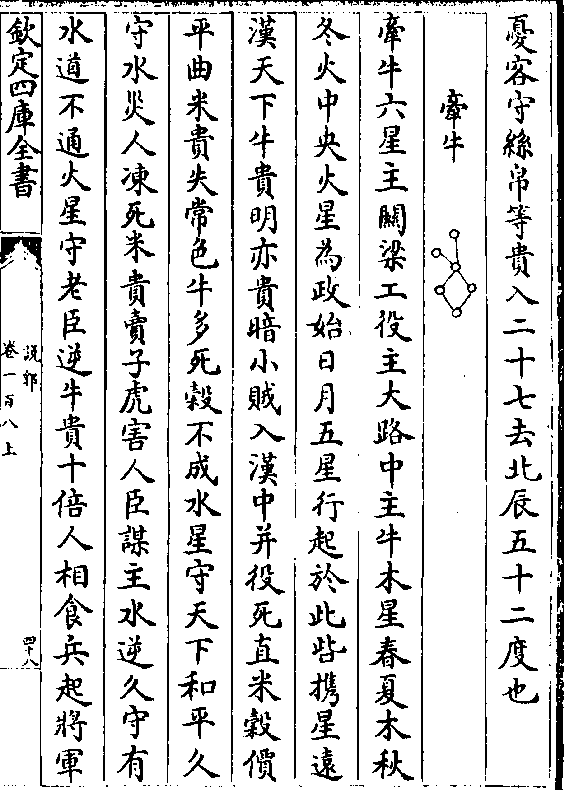 憂客守絲帛等貴入二十七去北辰五十二度也
牽牛
牽牛六星主關梁工役主大路中主牛木星春夏木秋
冬火中央火星為政始日月五星行起於此皆攜星遠
漢天下牛貴明亦貴暗小賊入漢中并役死直米穀價
平曲米貴失常色牛多死穀不成水星守天下和平久
守水災人凍死米貴賣子虎害人臣謀主水逆久守有
水道不通火星守老臣逆牛貴十倍人相食兵起將軍
欽定四庫全書
說郛
卷一百八上
四十八